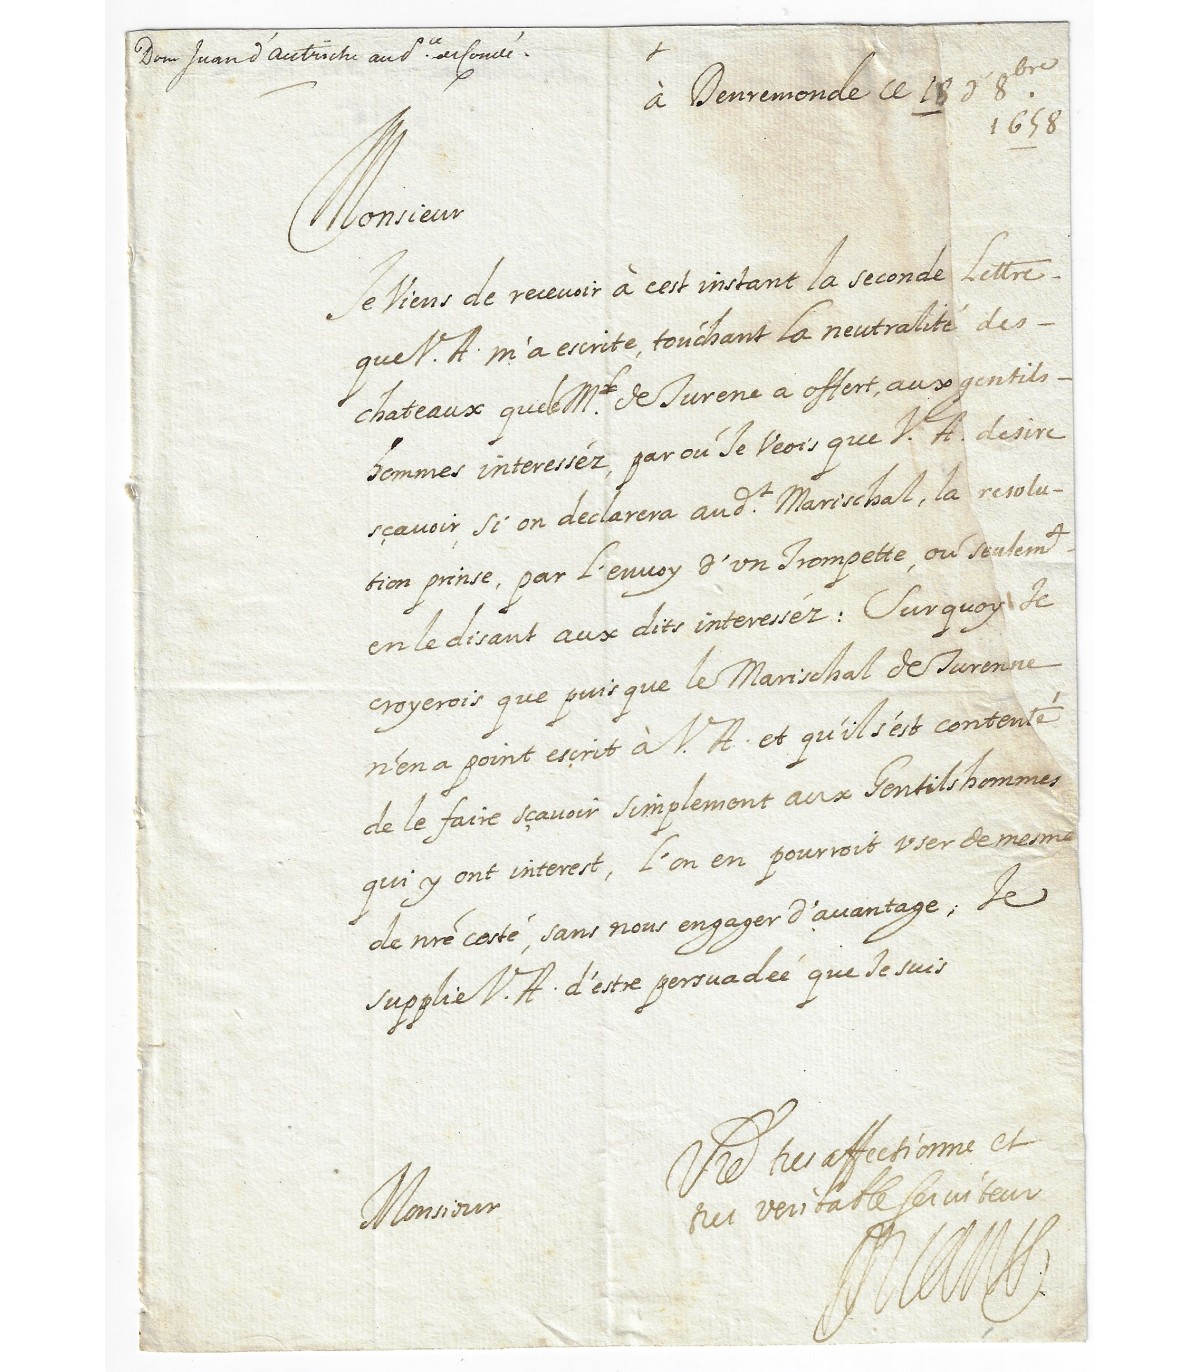 Dom Juan d'Autriche au P.ce de Condé.
à Denremonde ce 18 d' 8bre.
1658
Monsieur
Je Viens de recevoir à cest instant la seconde Lettre-
que V. A. m'a escrite, touchant la neutralité des-
chateaux que le M.al de Turene a offert, aux gentils-
hommes interesséz, par où Je Veois que V. A. desire
sçavoir, si on declarera aud.t Marischal, la resolu-
tion prinse, par l'envoy d'vn Trompette, ou seulem.t-
en le disant aux dits interesséz: Surquoy Je
croyerois que puis que le Marischal de Turenne
n'en a point escrit à V. A. et qu'il s'est contenté
de le faire sçavoir simplement aux Gentilshommes
qui y ont interest, l'on en pourroit vser de mesme
de nre costé, sans nous engager d'avantage; Je
supplie V. A. d'estre persuadeé que Je suis
Vre tres affectionne et
tres veritable serviteur
Monsieur
Juan